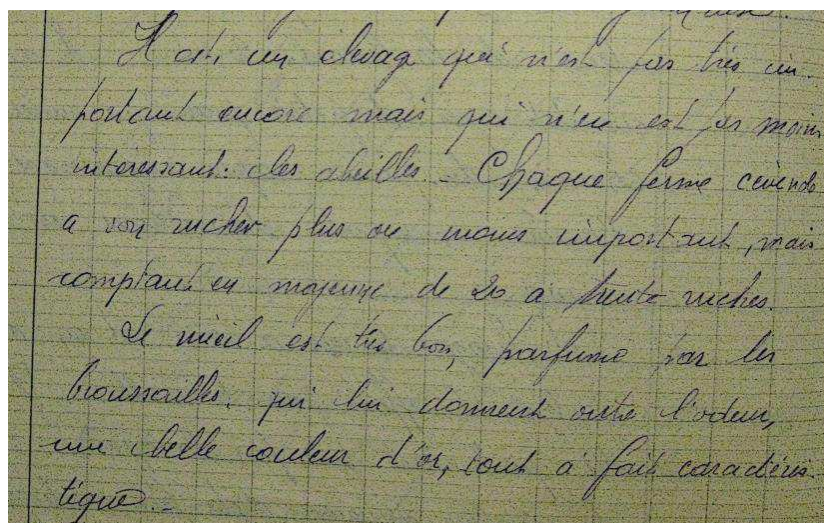 Il est un élevage qui n'est pas très im-
portant encore mais qui n'en est pas moins
intéressant: les abeilles - Chaque ferme cévenole
a son rucher plus ou moins important, mais
comptant en moyenne de 20 à trente ruches.
Le miel est très bon, parfumé par les
broussailles, qui lui donnent outre l'odeur,
une belle couleur d'or, tout à fait caractéris
tique.-